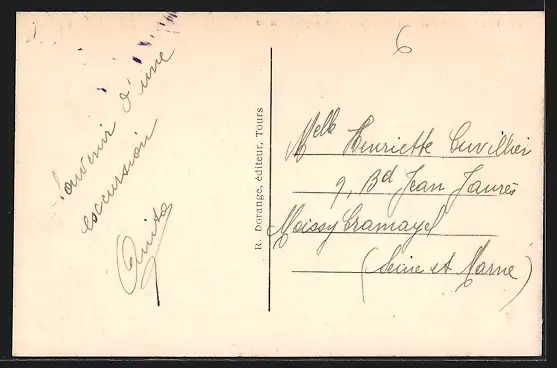 Souvenir d'une
excursion
Anita
R. Dorange, éditeur, Tours
6
Melle Henriette Cuvillier
9, Bd Jean Jaurès
Moissy Cramayel
(Seine et Marne)